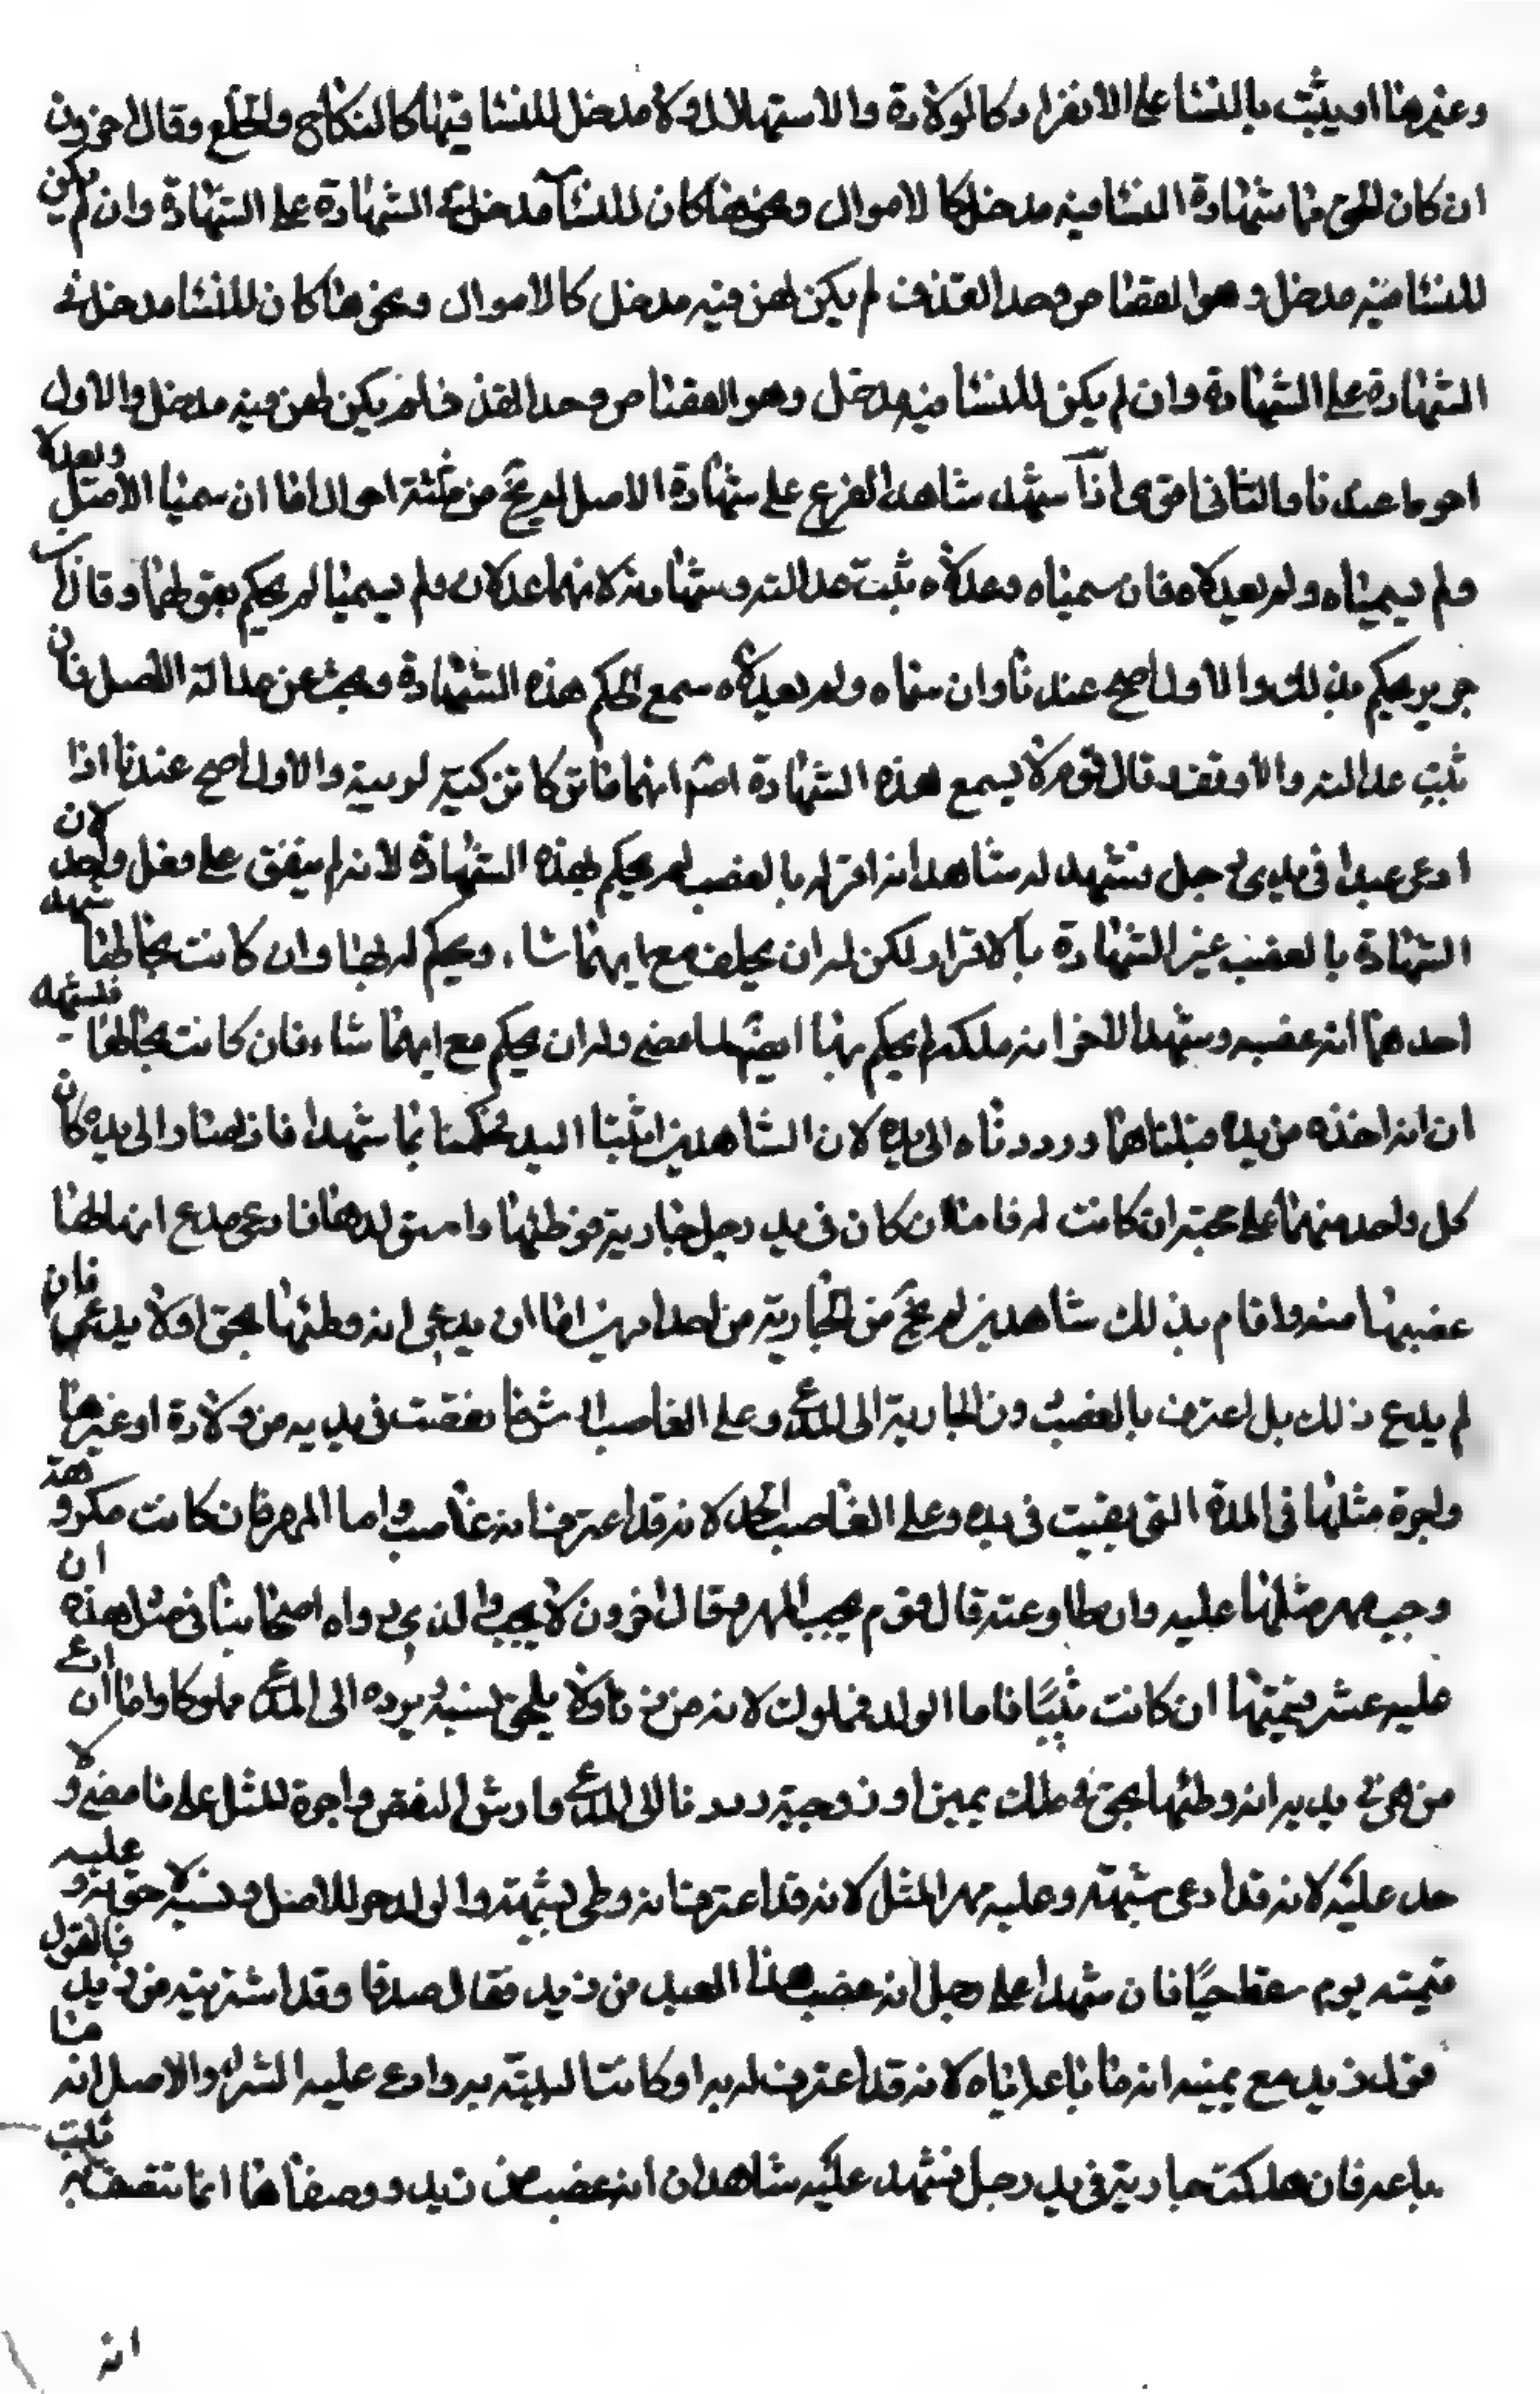 وغيرها او يثبت بالنسا على الانفراد كالولادة والاستهلال ولا مدخل للنسا فيها كالنكاح والخلع وقال اخرون
ان كان الحق مما شهادة النسا فيه مدخل كالاموال ونحوها كان للنسا مدخل في الشهادة على الشهادة وان لم يكن
للنسا فيه مدخل وهو القصاص وحد القذف لم يكن لهن فيه مدخل كالاموال ونحوها كان للنسا مدخل في
الشهادة على الشهادة وان لم يكن للنسا فيه مدخل وهو القصاص وحد القذف لم يكن لهن فيه مدخل والاول
احوط عندنا والثانى اقوى اذا شهد شاهد الفرع على شهادة الاصل لم يخ من ثلثة احوال اما ان سميا الاصل ويعدلا
ولم يسمياه ولم يعدلاه فان سمياه وعدلاه ثبت عدالته وشهادته لانهما عدلان ولم يسميا لم يحكم بقولهما وقال ابن
جرير يحكم بذلك والاول اصح عندنا وان سماه ولم يعدلاه سمع الحكم هذه الشهادة وبحث عن عدالة الاصل فان
ثبت عدالته والا وقف قال قوم لا يسمع هذه الشهادة والاول اصح عندنا اذا
ادعى عبدا فى يدى رجل فشهد له شاهد انه اقر له بالغصب لم يحكم بهذه الشهادة لانه لم يتفق على فعل واحد لان
الشهادة بالغصب غير الشهادة بالاقرار لكن له ان يحلف مع ايهما شاء ويحكم له بها وان كانت بحالها شهد
احدهما انه غصبه وشهد الاخر انه ملكه لم يحكم بها ايضا لما مضى وله ان يحكم مع ايهما شاء فان كانت بحالها فشهد
ان انه اخذه من يده قبلناهما ورددناه الى يده لان الشاهدين اثبتا اليد فحكمنا بما شهدا فاذا صار الى يده كان
كل واحد منهما على حجته ان كانت له فاما ان كان فى يد رجل جارية فوطئها واستولدها فادعى مدع انها له
غصبها منه واقام بذلك شاهدين لم يخ من الجارية من احد امرين اما ان يدعى انه وطئها بحق او لا يدعى فان
لم يدع ذلك بل اعترف بالغصب ردت الجارية الى المدعى وعلى الغاصب ارش ما نقصت فى يديه من ولادة او غيرها
واجرة مثلها فى المدة التى بقيت فى يده وعلى الغاصب الحد لانه قد اعترف انه غاصب واما المهر فان كانت مكرهة
وجب مهر مثلها عليه وان طاوعته قال قوم يجب المهر وقال اخرون لا يجب والذى رواه اصحابنا فى مثل هذه ان
عليه عشر قيمتها ان كانت ثيبا فاما الولد فمملوك لانه من زنا ولا يلحق نسبه ويرده الى المدعى مملوكا واما ان ادعى
من هو في يديه انه وطئها بحق في ملك يمين او زوجية رددنا الى المدعى وارش النقص واجرة المثل على ما مضى ولا
حد عليه لانه قد ادعى شبهة وعليه مهر المثل لانه قد اعترف انه وطى بشبهة والولد حر للاصل ونسبه لاحق به وعليه
قيمته يوم سقط حيا فان شهدا على رجل انه غصب هذا العبد من زيد فقال صدقا وقد اشتريته من زيد فالقول
قول زيد مع يمينه انه ما باعه اياه لانه قد اعترف له به او كانت البينة به وادعى عليه الشراء والاصل انه ما
باعه فان هلكت جارية فى يد رجل فشهد عليه شاهدان انه غصب من زيد ووصفاها انما تتصف به ثلبت
انه